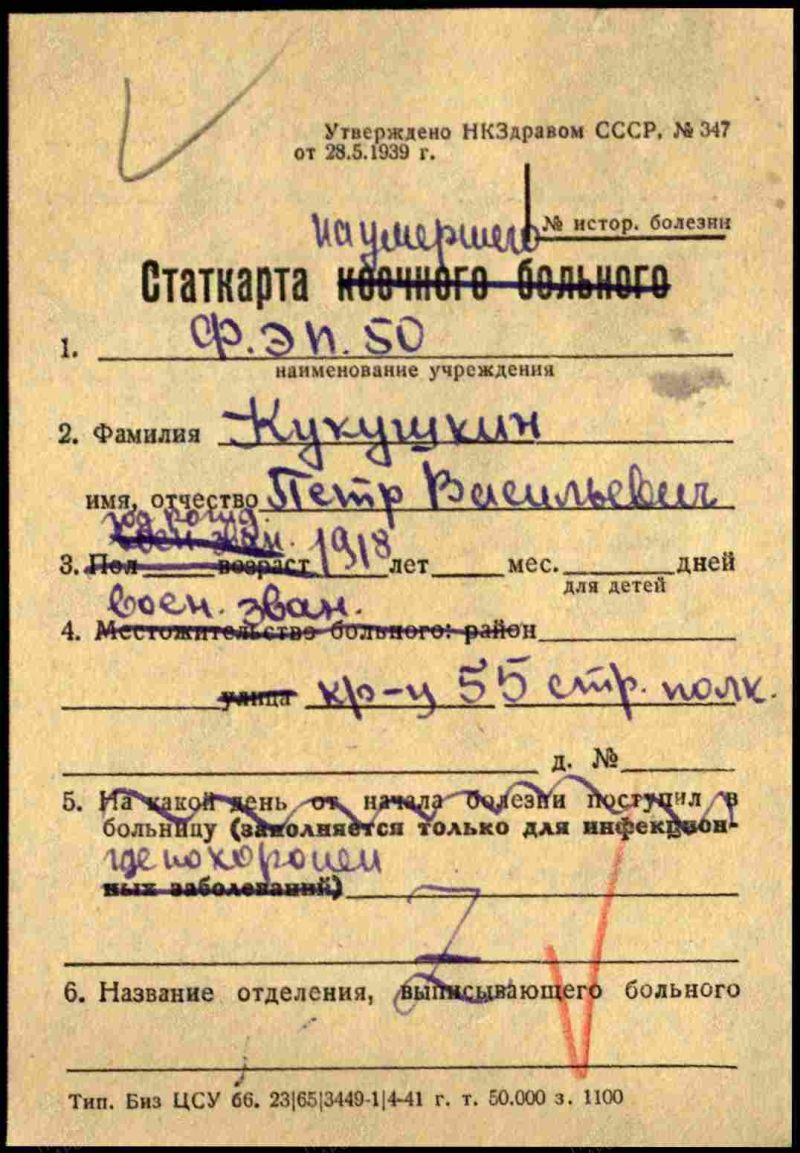 Утверждено НКЗдравом СССР, № 347
от 28.5.1939 г.
№ истор. болезни
на умершего
Статкарта коечного больного
1. Ф.Э П. 50
наименование учреждения
2. Фамилия Кукушкин
имя, отчество Петр Васильевич
год рожд.
воен. зван.
3. Пол возраст 1918 лет мес. дней
для детей
воен. зван.
4. Местожительство больного: район
улица кр-ц 55 стр. полк.
д. №
5. На какой день от начала болезни поступил в
больницу (заполняется только для инфекцион-
где похоронен
ных заболеваний)
6. Название отделения, выписывающего больного
Тип. Биз ЦСУ 66. 23|65|3449-1|4-41 г. т. 50.000 з. 1100